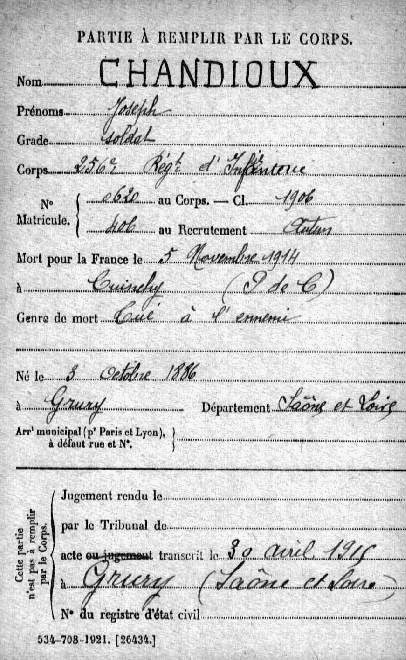 PARTIE À REMPLIR PAR LE CORPS.
Nom CHANDIOUX
Prénoms Joseph
Grade soldat
Corps 256e Régt d'Infanterie
N° Matricule. { 0620 au Corps. — Cl. 1906
406 au Recrutement Autun
Mort pour la France le 5 Novembre 1914
à (P de C)
Genre de mort Tué à l'ennemi
Né le 3 octobre 1886
à Grury Département Saône et Loire
Arrt municipal (pr Paris et Lyon), à défaut rue et N°. }
Cette partie n'est pas à remplir par le Corps.
Jugement rendu le
par le Tribunal de
acte ou jugement transcrit le 30 avril 1915
à Grury (Saône et Loire)
N° du registre d'état civil
534-708-1921. [26434.]